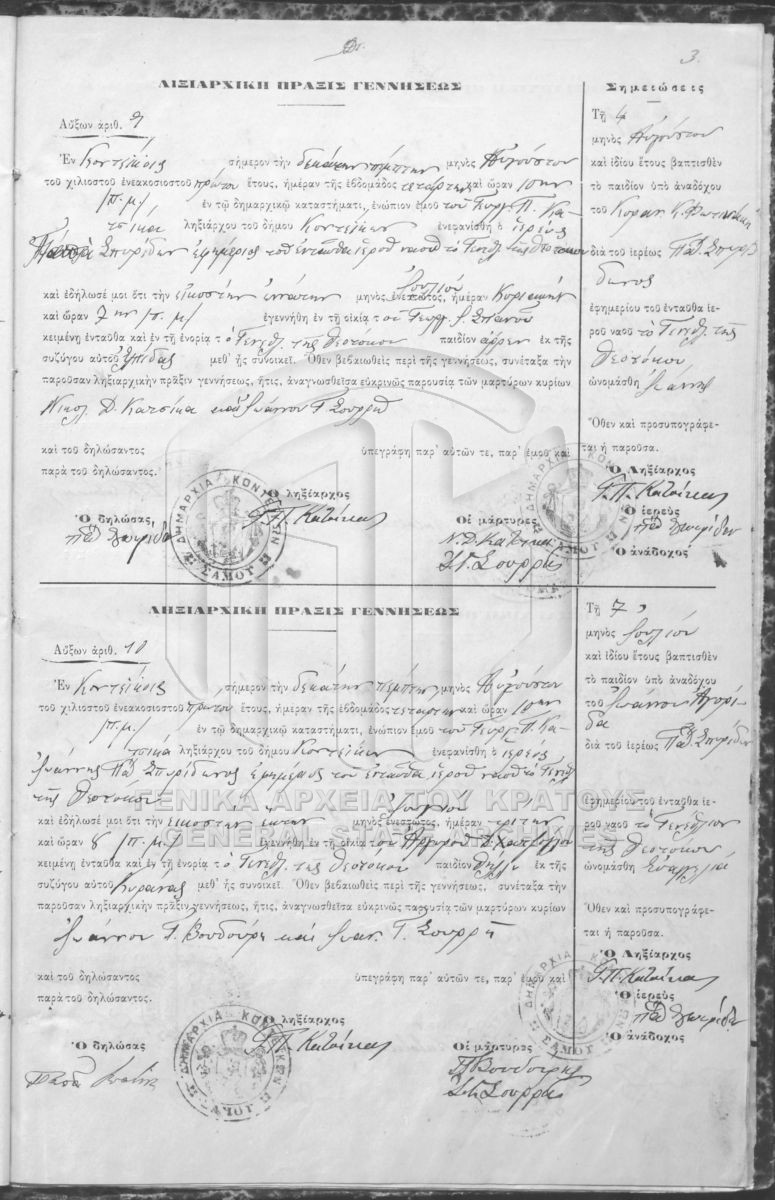 3.
ΛΙΞΙΑΡΧΙΚΗ ΠΡΑΞΙΣ ΓΕΝΝΗΣΕΩΣ
Αὔξων ἀριθ. 9
Ἐν Κοντεΐκοις σήμερον τὴν δεκάτην πέμπτην μηνὸς Αὐγούστου
τοῦ χιλιοστοῦ ἐνεακοσιοστοῦ πρώτου ἔτους, ἡμέραν τῆς ἑβδομάδος τετάρτην καὶ ὥραν 10ην
/π.μ./ ἐν τῷ δημαρχικῷ καταστήματι, ἐνώπιον ἐμοῦ τοῦ Γεωργ. Π. Κα-
τσίκα ληξιάρχου τοῦ δήμου Κοντεΐκων ἐνεφανίσθη ὁ ἱερεὺς
Σπυρίδων ἐφημέριος τοῦ ἐνταῦθα ἱεροῦ ναοῦ τὸ Γενέθλ. τῆς Θεοτόκου
Ἰουλίου
καὶ ἐδήλωσέ μοι ὅτι τὴν εἰκοστὴν ἐννάτην μηνὸς ἐνεστῶτος, ἡμέραν Κυριακὴν
καὶ ὥραν 7ην /π.μ./ ἐγεννήθη ἐν τῇ οἰκίᾳ τοῦ Γεωργ. Ι. Σπανοῦ
κειμένῃ ἐνταῦθα καὶ ἐν τῇ ἐνορίᾳ τὸ Γενέθλ. τῆς Θεοτόκου παιδίον ἄρρεν ἐκ τῆς
συζύγου αὐτοῦ Ἐλπίδας μεθ᾽ ἧς συνοικεῖ. Ὅθεν βεβαιωθεὶς περὶ τῆς γεννήσεως, συνέταξα τὴν
παροῦσαν ληξιαρχικὴν πρᾶξιν γεννήσεως, ἥτις, ἀναγνωσθεῖσα εὐκρινῶς παρουσίᾳ τῶν μαρτύρων κυρίων
Νικολ. Δ. Κατσίκα καὶ Ἰωάννου Γ. Σουρρῆ
καὶ τοῦ δηλώσαντος ὑπεγράφη παρ᾽ αὐτῶν τε, παρ᾽ ἐμοῦ καὶ
παρὰ τοῦ δηλώσαντος.
Ὁ ληξίαρχος
Γ. Π. Κατσίκας
Ὁ δηλώσας,
Οἱ μάρτυρες,
Ν. Δ. Κατσίκας
Ι. Γ. Σουρρῆς
ΔΗΜΑΡΧΙΑ ΚΟΝΤΕΪΚΩΝ
ΣΑΜΟΥ
Σημειώσεις
Τῇ 4
μηνὸς Αὐγούστου
καὶ ἰδίου ἔτους βαπτισθὲν
τὸ παιδίον ὑπὸ ἀναδόχου
τοῦ
διὰ τοῦ ἱερέως Παπ. Σπυρί
δωνος
ἐφημερίου τοῦ ἐνταῦθα ἱε-
ροῦ ναοῦ τὸ Γενέθλ. τῆς
Θεοτόκου
ὠνομάσθη Ἰωάννης
Ὅθεν καὶ προσυπογράφε-
ται ἡ παροῦσα.
Ὁ Ληξίαρχος
Γ. Π. Κατσίκας
Ὁ ἱερεὺς
Ὁ ἀνάδοχος
ΛΗΞΙΑΡΧΙΚΗ ΠΡΑΞΙΣ ΓΕΝΝΗΣΕΩΣ
Αὔξων ἀριθ. 10
Ἐν Κοντεΐκοις σήμερον τὴν δεκάτην πέμπτην μηνὸς Αὐγούστου
τοῦ χιλιοστοῦ ἐνεακοσιοστοῦ πρώτου ἔτους, ἡμέραν τῆς ἑβδομάδος τετάρτην καὶ ὥραν 10ην
/π.μ./ ἐν τῷ δημαρχικῷ καταστήματι, ἐνώπιον ἐμοῦ τοῦ Γεωργ. Π. Κα-
τσίκα ληξιάρχου τοῦ δήμου Κοντεΐκων ἐνεφανίσθη ὁ ἱερεὺς
Ἰωάννης Παπ. Σπυρίδωνος ἐφημέριος τοῦ ἐνταῦθα ἱεροῦ ναοῦ τὸ Γενέθλ.
τῆς Θεοτόκου
Ἰουλίου
καὶ ἐδήλωσέ μοι ὅτι τὴν εἰκοστὴν ἕκτην μηνὸς ἐνεστῶτος, ἡμέραν τρίτην
καὶ ὥραν 8 /π.μ./ ἐγεννήθη ἐν τῇ οἰκίᾳ τοῦ Ἀργυροῦ
κειμένῃ ἐνταῦθα καὶ ἐν τῇ ἐνορίᾳ τὸ Γενέθλ. τῆς Θεοτόκου παιδίον θῆλυ ἐκ τῆς
συζύγου αὐτοῦ Κυράνας μεθ᾽ ἧς συνοικεῖ. Ὅθεν βεβαιωθεὶς περὶ τῆς γεννήσεως, συνέταξα τὴν
παροῦσαν ληξιαρχικὴν πρᾶξιν γεννήσεως, ἥτις, ἀναγνωσθεῖσα εὐκρινῶς παρουσίᾳ τῶν μαρτύρων κυρίων
Ἰωάννου Γ. Βουδούρη καὶ Ἰωαν. Γ. Σουρρῆ
καὶ τοῦ δηλώσαντος ὑπεγράφη παρ᾽ αὐτῶν τε, παρ᾽ ἐμοῦ καὶ
παρὰ τοῦ δηλώσαντος.
Ὁ ληξίαρχος
Γ. Π. Κατσίκας
Ὁ δηλώσας
Οἱ μάρτυρες
Βουδούρης
Ι. Γ. Σουρρῆς
ΔΗΜΑΡΧΙΑ ΚΟΝΤΕΪΚΩΝ
ΣΑΜΟΥ
Τῇ 7
μηνὸς Ἰουλίου
καὶ ἰδίου ἔτους βαπτισθὲν
τὸ παιδίον ὑπὸ ἀναδόχου
τοῦ Ἰωάννου
διὰ τοῦ ἱερέως Παπ. Σπυρίδων
ἐφημερίου τοῦ ἐνταῦθα ἱε-
ροῦ ναοῦ τὸ Γενέθλιον
τῆς Θεοτόκου
ὠνομάσθη Εὐαγγελία
Ὅθεν καὶ προσυπογράφε-
ται ἡ παροῦσα.
Ὁ Ληξίαρχος
Γ. Π. Κατσίκας
Ὁ ἱερεὺς
Ὁ ἀνάδοχος
ΓΕΝΙΚΑ ΑΡΧΕΙΑ ΤΟΥ ΚΡΑΤΟΥΣ
GENERAL STATE ARCHIVES